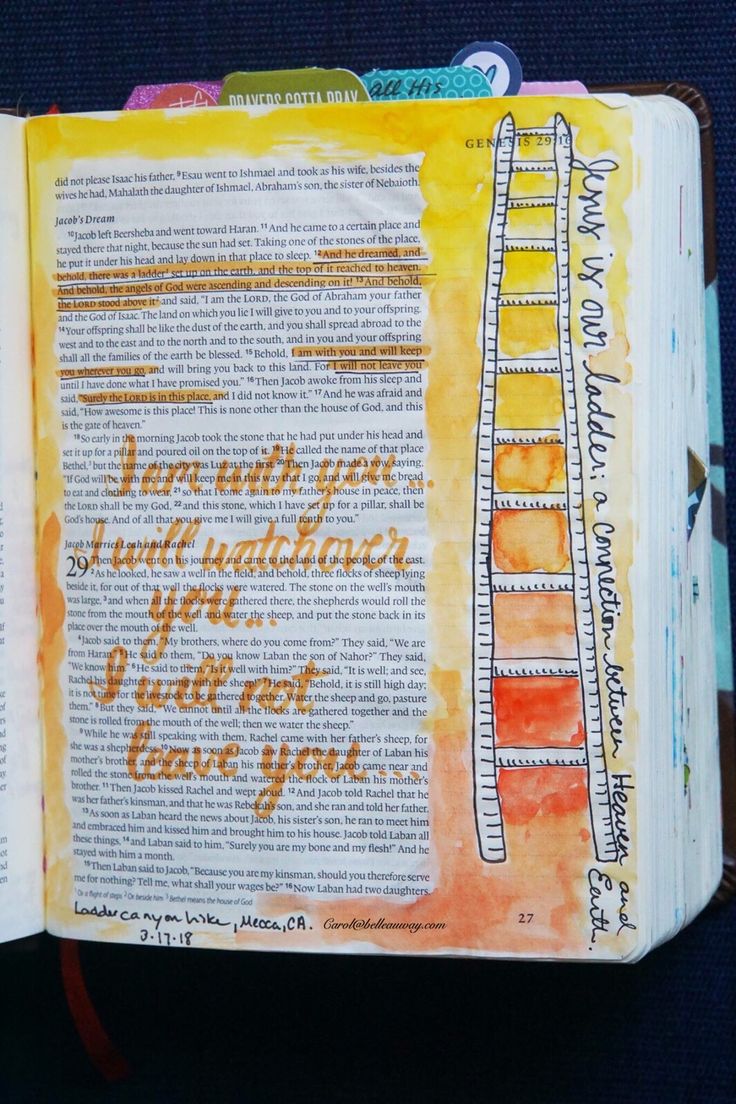 PRAYERS GOTTA PRAY
all His
GENESIS 29:16
did not please Isaac his father, ⁹Esau went to Ishmael and took as his wife, besides the
wives he had, Mahalath the daughter of Ishmael, Abraham's son, the sister of Nebaioth.
Jacob's Dream
¹⁰Jacob left Beersheba and went toward Haran. ¹¹And he came to a certain place and
stayed there that night, because the sun had set. Taking one of the stones of the place,
he put it under his head and lay down in that place to sleep. ¹²And he dreamed, and
behold, there was a ladder¹ set up on the earth, and the top of it reached to heaven.
And behold, the angels of God were ascending and descending on it! ¹³And behold,
the LORD stood above it² and said, "I am the LORD, the God of Abraham your father
and the God of Isaac. The land on which you lie I will give to you and to your offspring.
¹⁴Your offspring shall be like the dust of the earth, and you shall spread abroad to the
west and to the east and to the north and to the south, and in you and your offspring
shall all the families of the earth be blessed. ¹⁵Behold, I am with you and will keep
you wherever you go, and will bring you back to this land. For I will not leave you
until I have done what I have promised you." ¹⁶Then Jacob awoke from his sleep and
said, "Surely the LORD is in this place, and I did not know it." ¹⁷And he was afraid and
said, "How awesome is this place! This is none other than the house of God, and this
is the gate of heaven."
¹⁸So early in the morning Jacob took the stone that he had put under his head and
set it up for a pillar and poured oil on the top of it. ¹⁹He called the name of that place
Bethel,³ but the name of the city was Luz at the first. ²⁰Then Jacob made a vow, saying,
"If God will be with me and will keep me in this way that I go, and will give me bread
to eat and clothing to wear, ²¹so that I come again to my father's house in peace, then
the LORD shall be my God, ²²and this stone, which I have set up for a pillar, shall be
God's house. And of all that you give me I will give a full tenth to you."
Jacob Marries Leah and Rachel
29 Then Jacob went on his journey and came to the land of the people of the east.
²As he looked, he saw a well in the field, and behold, three flocks of sheep lying
beside it, for out of that well the flocks were watered. The stone on the well's mouth
was large, ³and when all the flocks were gathered there, the shepherds would roll the
stone from the mouth of the well and water the sheep, and put the stone back in its
place over the mouth of the well.
⁴Jacob said to them, "My brothers, where do you come from?" They said, "We are
from Haran." ⁵He said to them, "Do you know Laban the son of Nahor?" They said,
"We know him." ⁶He said to them, "Is it well with him?" They said, "It is well; and see,
Rachel his daughter is coming with the sheep!" ⁷He said, "Behold, it is still high day;
it is not time for the livestock to be gathered together. Water the sheep and go, pasture
them." ⁸But they said, "We cannot until all the flocks are gathered together and the
stone is rolled from the mouth of the well; then we water the sheep."
⁹While he was still speaking with them, Rachel came with her father's sheep, for
she was a shepherdess. ¹⁰Now as soon as Jacob saw Rachel the daughter of Laban his
mother's brother, and the sheep of Laban his mother's brother, Jacob came near and
rolled the stone from the well's mouth and watered the flock of Laban his mother's
brother. ¹¹Then Jacob kissed Rachel and wept aloud. ¹²And Jacob told Rachel that he
was her father's kinsman, and that he was Rebekah's son, and she ran and told her father.
¹³As soon as Laban heard the news about Jacob, his sister's son, he ran to meet him
and embraced him and kissed him and brought him to his house. Jacob told Laban all
these things, ¹⁴and Laban said to him, "Surely you are my bone and my flesh!" And he
stayed with him a month.
¹⁵Then Laban said to Jacob, "Because you are my kinsman, should you therefore serve
me for nothing? Tell me, what shall your wages be?" ¹⁶Now Laban had two daughters.
¹ Or a flight of steps ² Or beside him ³ Bethel means the house of God
I am with you...
I will watch over
you...
I will not
leave you...
Jesus is our ladder; a connection between Heaven and
Earth.
Ladder canyon hike, Mecca, CA.
3-17-18
Carol@belleauway.com
27